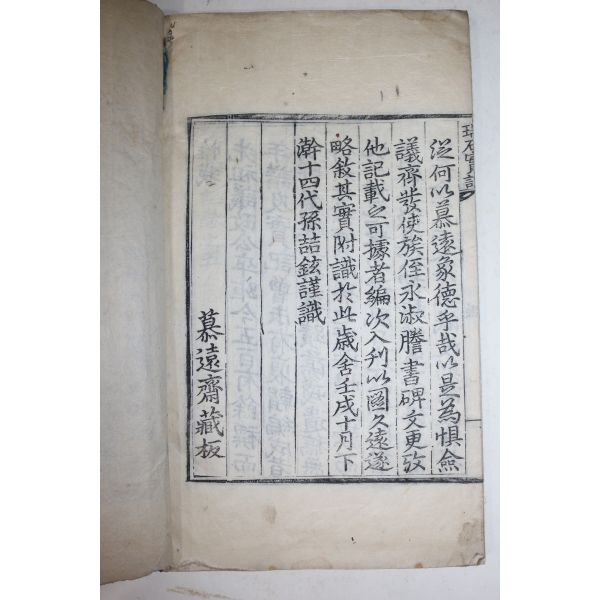 從何以慕遠象德乎哉以是爲惧僉
議齊發使族侄永淑謄書碑文更攷
他記載之可據者編次入刋以圖久遠遂
略敘其實附識於此歲舍壬戌十月下
澣十四代孫喆鉉謹識
慕遠齋藏板